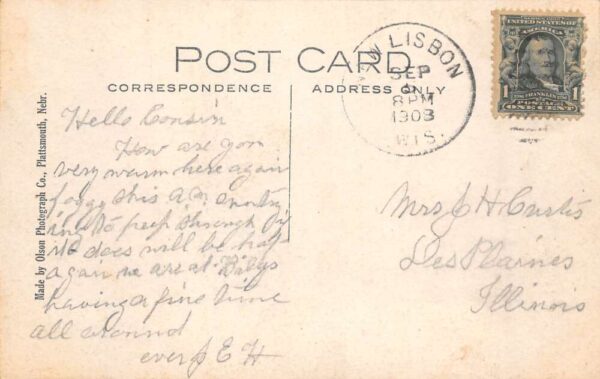 POST CARD
CORRESPONDENCE
ADDRESS ONLY
Made by Olson Photograph Co., Plattsmouth, Nebr.
NEW LISBON
SEP
8 PM
1908
WIS.
UNITED STATES OF
AMERICA
1 FRANKLIN 1
POSTAGE
ONE CENT
Hello Cousin
How are you
very warm here again
foggy this a.m. Sun try
ing to peep through if
it does will be hot
again we are at Billys
having a fine time
all around
ever J E H
Mrs J H Curtis
Des Plaines
Illinois